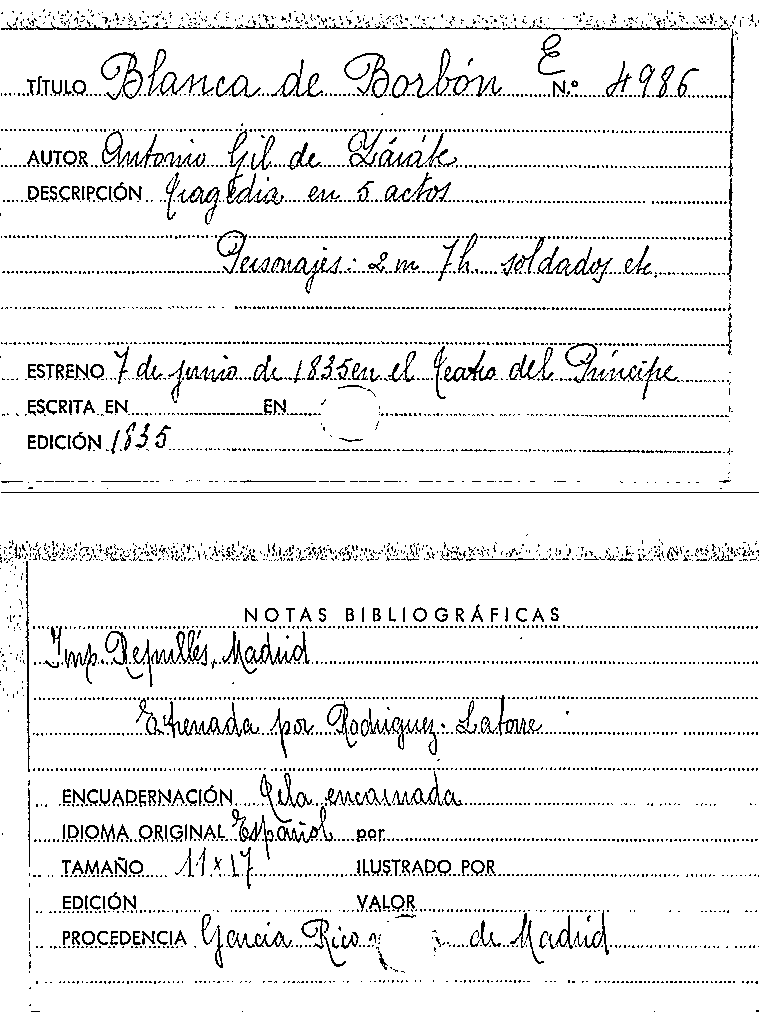 E
TÍTULO Blanca de Borbón N.º 4986
AUTOR Antonio Gil de Zárate
DESCRIPCIÓN Tragedia en 5 actos
Personajes: 2 m 7 h. soldados etc.
ESTRENO 7 de junio de 1835 en el Teatro del Príncipe
ESCRITA EN EN
EDICIÓN 1835
NOTAS BIBLIOGRÁFICAS
Imp. Repullés, Madrid
Estrenada por Rodriguez. Latorre
ENCUADERNACIÓN Tela encarnada
IDIOMA ORIGINAL Español por
TAMAÑO 11 x 17 ILUSTRADO POR
EDICIÓN VALOR
PROCEDENCIA García Rico y de Madrid